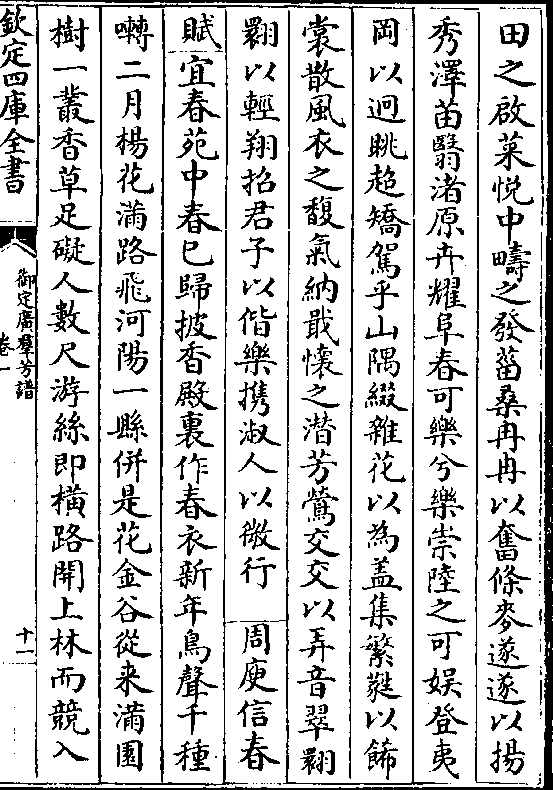 田之啟菜悦中疇之發菑桑冉冉以奮條麥遂遂以揚
秀澤苗翳渚原卉耀阜春可樂兮樂崇陸之可娱登夷
岡以迥眺超矯駕乎山隅綴雜花以為蓋集繁蕤以飾
裳散風衣之馥氣納戢懷之潛芳鶯交交以弄音翠翾
翾以輕翔招君子以偕樂携淑人以微行 周庾信春
賦宜春苑中春已歸披香殿裏作春衣新年鳥聲千種
囀二月楊花滿路飛河陽一縣併是花金谷從来滿園
樹一叢香草足礙人數尺游絲即橫路開上林而競入
欽定四庫全書
御定廣羣芳譜
卷一
十一